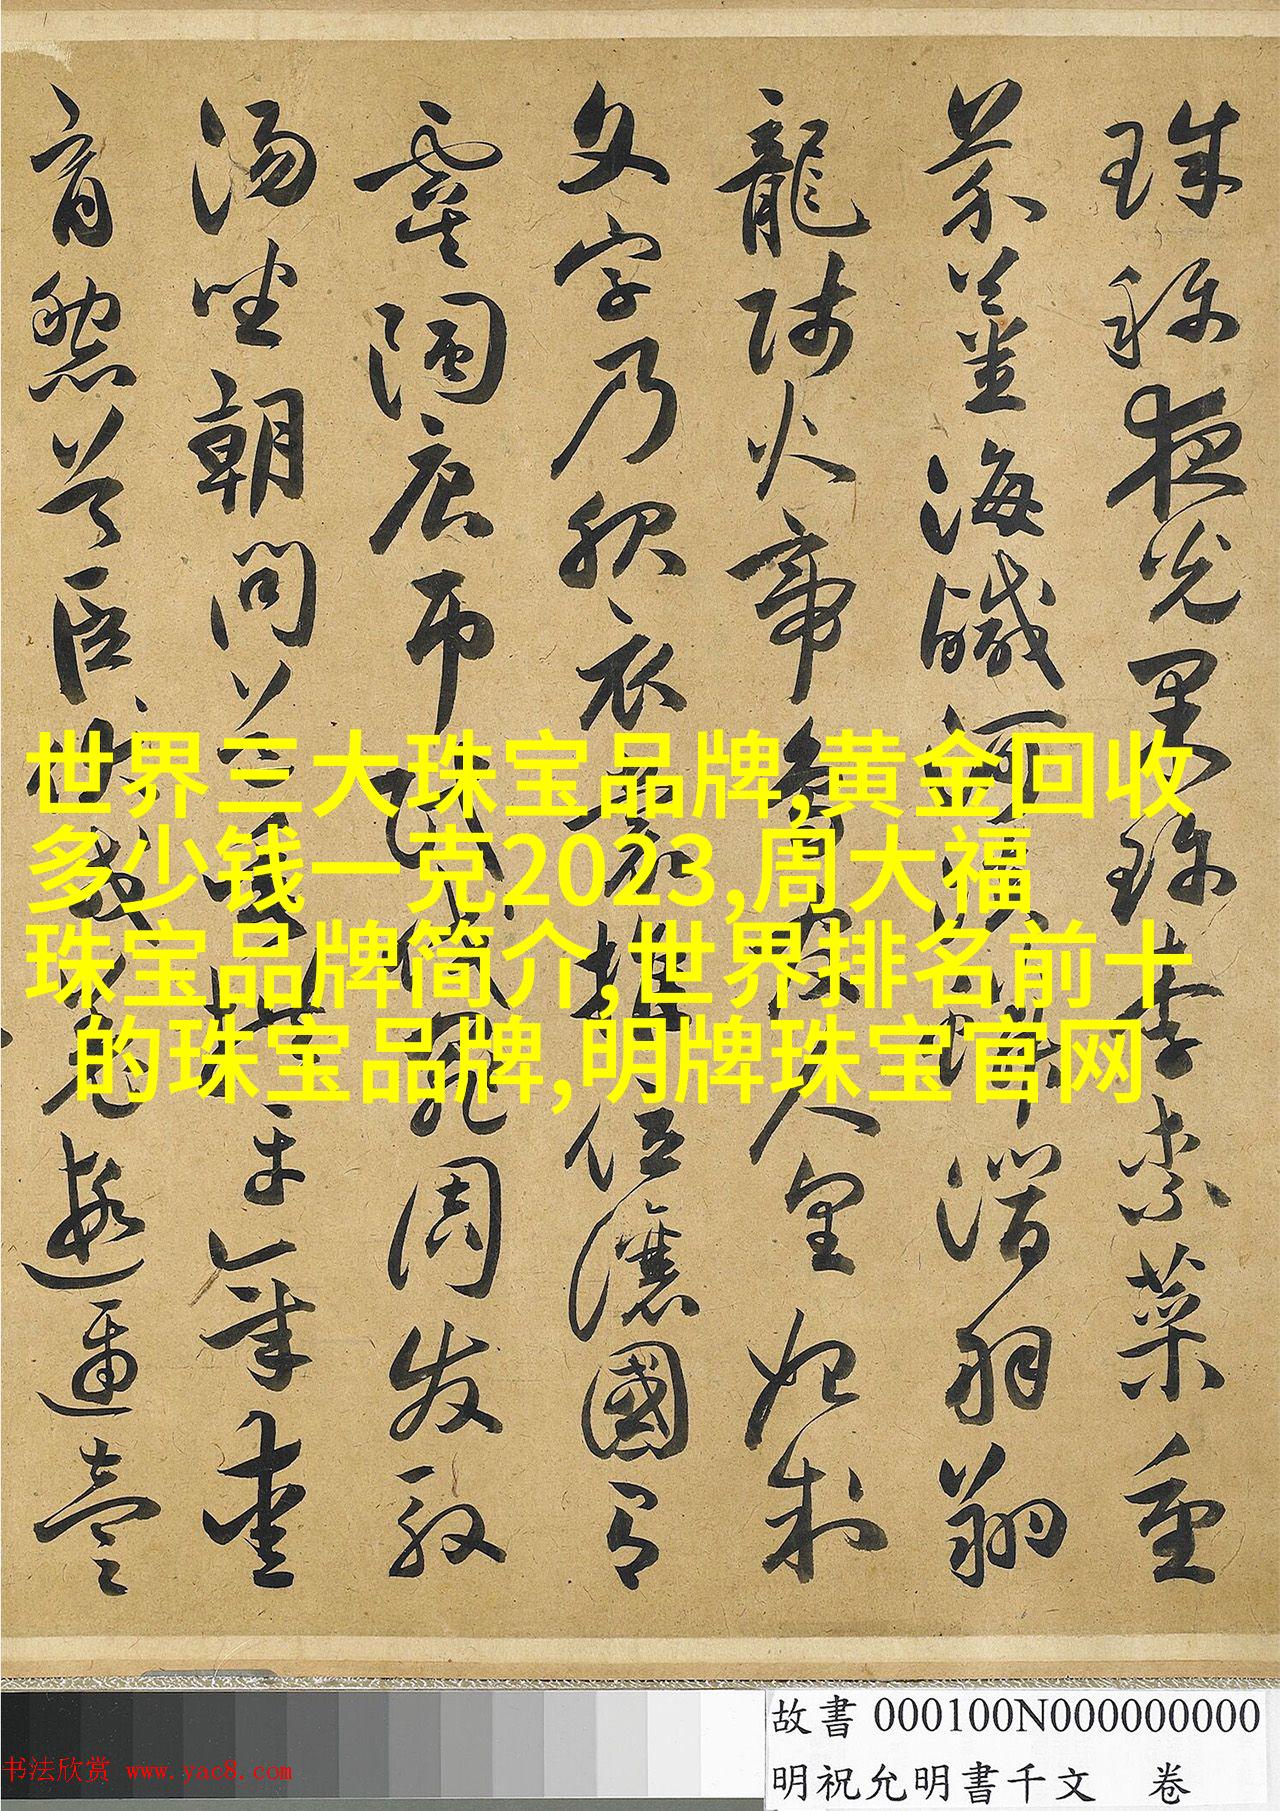 珠稱夜光果珍李柰菜重
芥薑海鹹河淡鱗潛羽翔
龍師火帝鳥官人皇始制
文字乃服衣裳推位讓國有
虞陶唐弔民伐罪周發殷
湯坐朝問道垂拱平章愛
育黎首臣伏戎羌遐邇壹
世界三大珠宝品牌,黄金回收
多少钱一克2023,周大福
珠宝品牌简介,世界排名前十
的珠宝品牌,明牌珠宝官网
故書 000100N000000000
明祝允明書千文 卷
书法欣赏 www.yac8.com